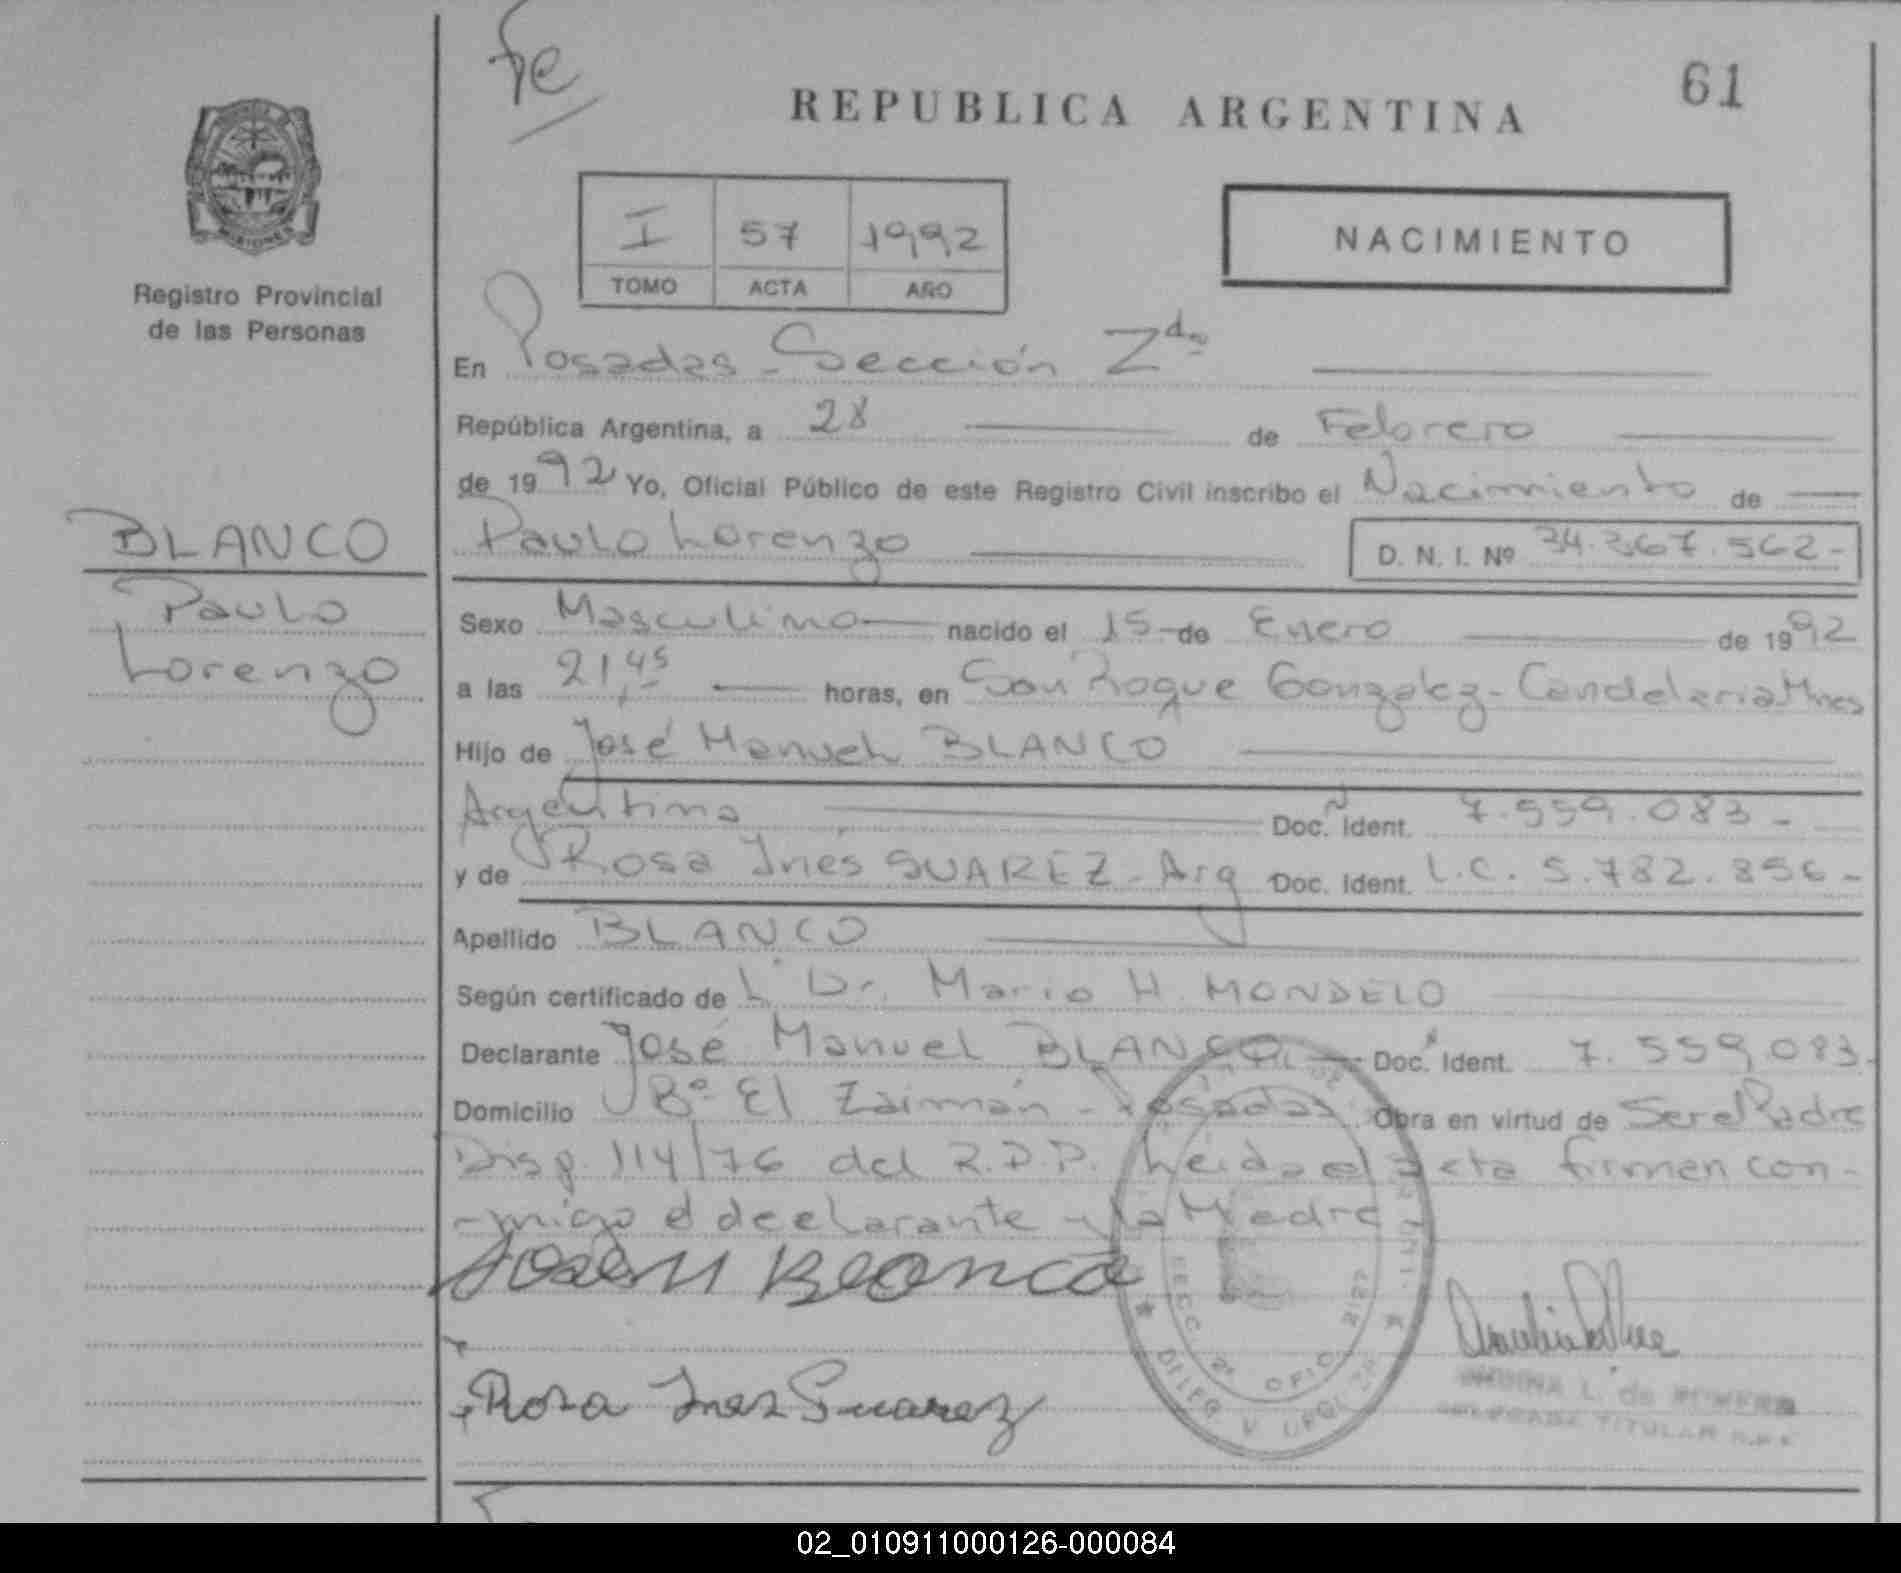 Fe
REPUBLICA ARGENTINA
61
MISIONES
Registro Provincial
de las Personas
I 57 1992
TOMO ACTA AÑO
NACIMIENTO
En Posadas - Sección 2da
República Argentina, a 28 de Febrero
de 1992 Yo, Oficial Público de este Registro Civil inscribo el Nacimiento de
Paulo Lorenzo D. N. I. Nº 34.367.562-
BLANCO
Paulo
Lorenzo
Sexo Masculino nacido el 15 de Enero de 1992
a las 21,45 horas, en San Roque Gonzalez - Candelaria Mnes
Hijo de José Manuel BLANCO
Argentina Doc. Ident. 7.559.083-
y de Rosa Inés SUAREZ - Arg Doc. Ident. L.C. 5.782.856-
Apellido BLANCO
Según certificado de Dr. Mario H. MONDELO
Declarante José Manuel BLANCO Doc. Ident. 7.559.083-
Domicilio Bº El Zaimán - Posadas Obra en virtud de Ser el Padre
Disp. 114/76 del R.P.P. Leída el acta firman con-
-migo el declarante y la Madre
José M Blanco
Rosa Inez Suarez
SECC 2ª OFIC
L. de ROMERO
TITULAR
02_010911000126-000084